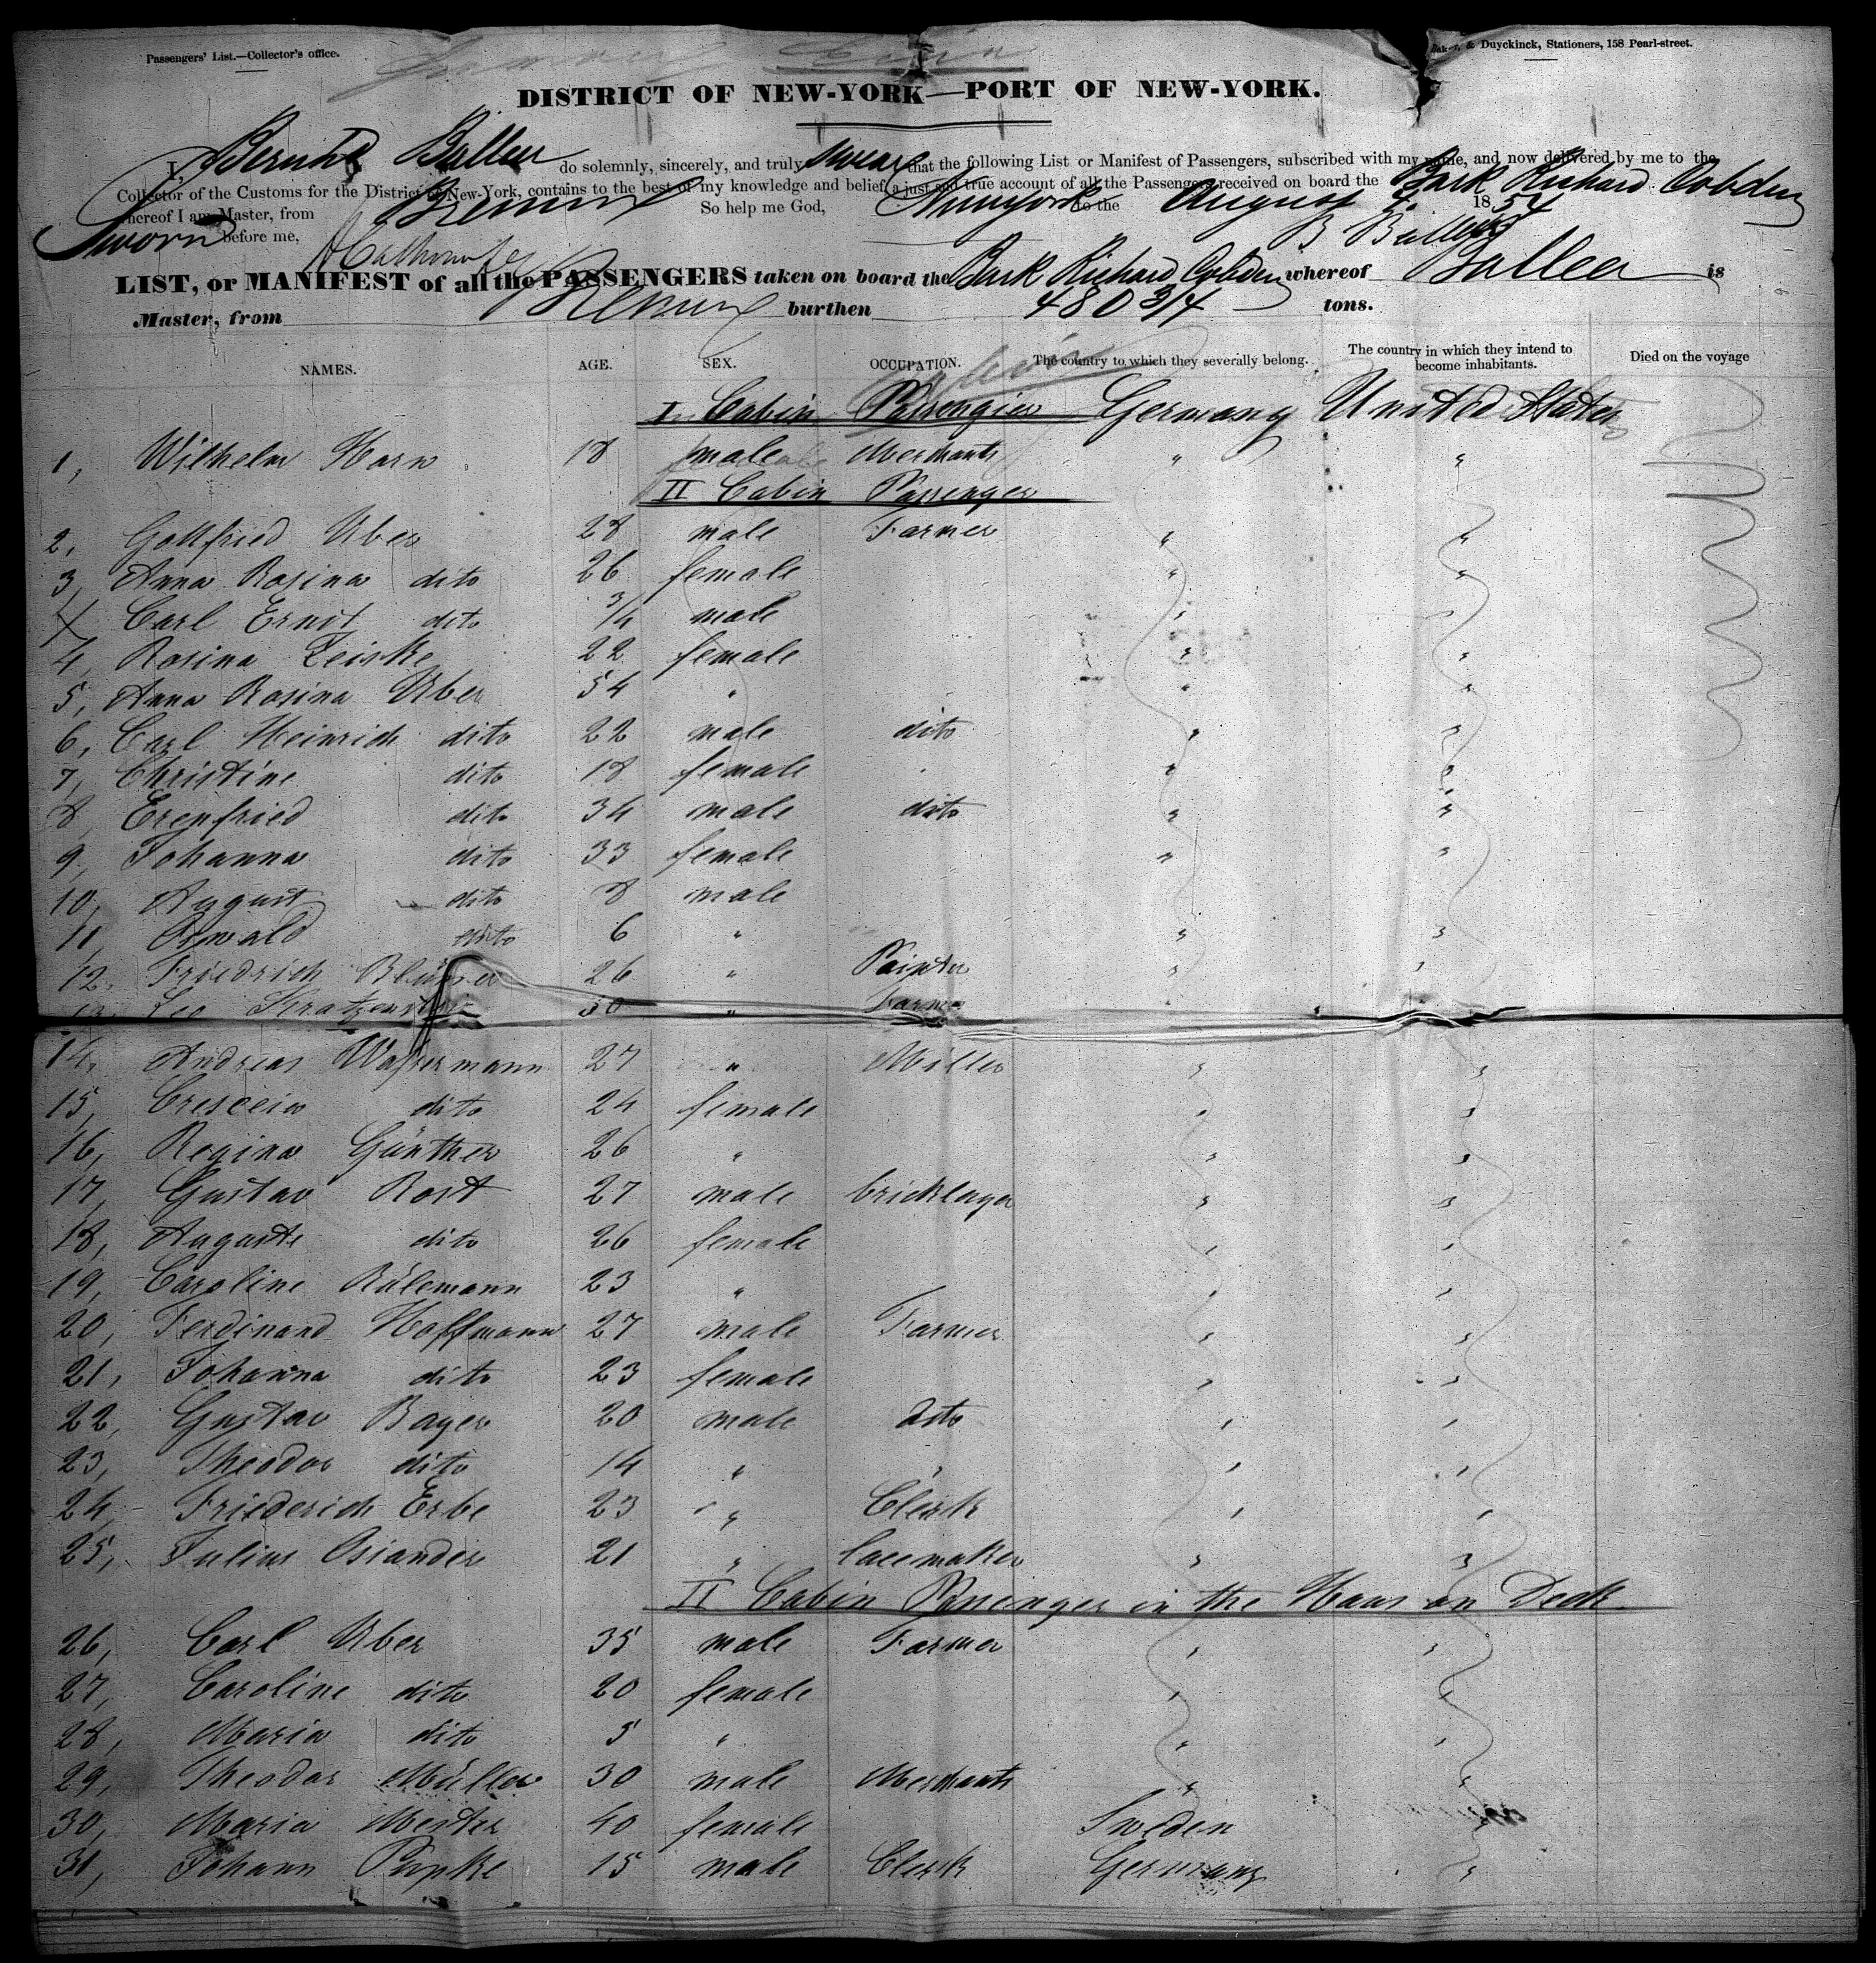 Passengers' List.—Collector's office.
Baker, & Duyckinck, Stationers, 158 Pearl-street.
DISTRICT OF NEW-YORK—PORT OF NEW-YORK.
I, do solemnly, sincerely, and truly swear that the following List or Manifest of Passengers, subscribed with my name, and now delivered by me to the
Collector of the Customs for the District of New-York, contains to the best of my knowledge and belief, a just and true account of all the Passengers received on board the Bark Richard Cobden
whereof I am Master, from Bremen So help me God,
Sworn to the August 4. 1854
before me, B Balleer
LIST, or MANIFEST of all the PASSENGERS taken on board the Bark Richard Cobden whereof Balleer is
Master, from Bremen burthen 480 3/4 tons.
NAMES. AGE. SEX. OCCUPATION. The country to which they severally belong. The country in which they intend to become inhabitants. Died on the voyage
I Cabin Passengier Germany United States
1, Wilhelm Horn 18 male Merchants " "
II Cabin Passenger
2, Gottfried Uber 28 male Farmer " "
3, Anna Rosina dito 26 female " "
4 Carl Ernst dito 3/4 male "
4, Rosina Zeiske 22 female " "
5, Anna Rosina Uber 54 " " "
6, Carl Heinrich dito 22 male dito " "
7, Christine dito 18 female " "
8, Erenfried dito 34 male dito " "
9, Johanna dito 33 female " "
10, August dito 8 male
11, Oswald dito 6 " " "
12. Friedrich 26 " Painter " "
13. Leo 30 " Farmer "
14, Andreas Wassermann 27 " Miller " "
15, dito 24 female " "
16, Regina Günther 26 " " "
17, Gustav Rost 27 male bricklayer " "
18, Auguste dito 26 female " "
19, Caroline Rülemann 23 " " "
20, Ferdinand Hoffmann 27 male Farmer " "
21, Johanna dito 23 female " "
22, Gustav Bayer 20 male dito " "
23, Theodor dito 14 " " " "
24, Friederich Erbe 23 " Clerk " "
25, Julius Osiander 21 " lacemaker " "
II Cabin Passenger in the Haus on Deck
26, Carl Uber 35 male Farmer " "
27, Caroline dito 20 female " "
28, Maria dito 5 " " "
29, Theodor Müller 30 male Merchants " "
30, Maria Mester 40 female Sweden "
31, Johann Pupke 15 male Clerk Germany "